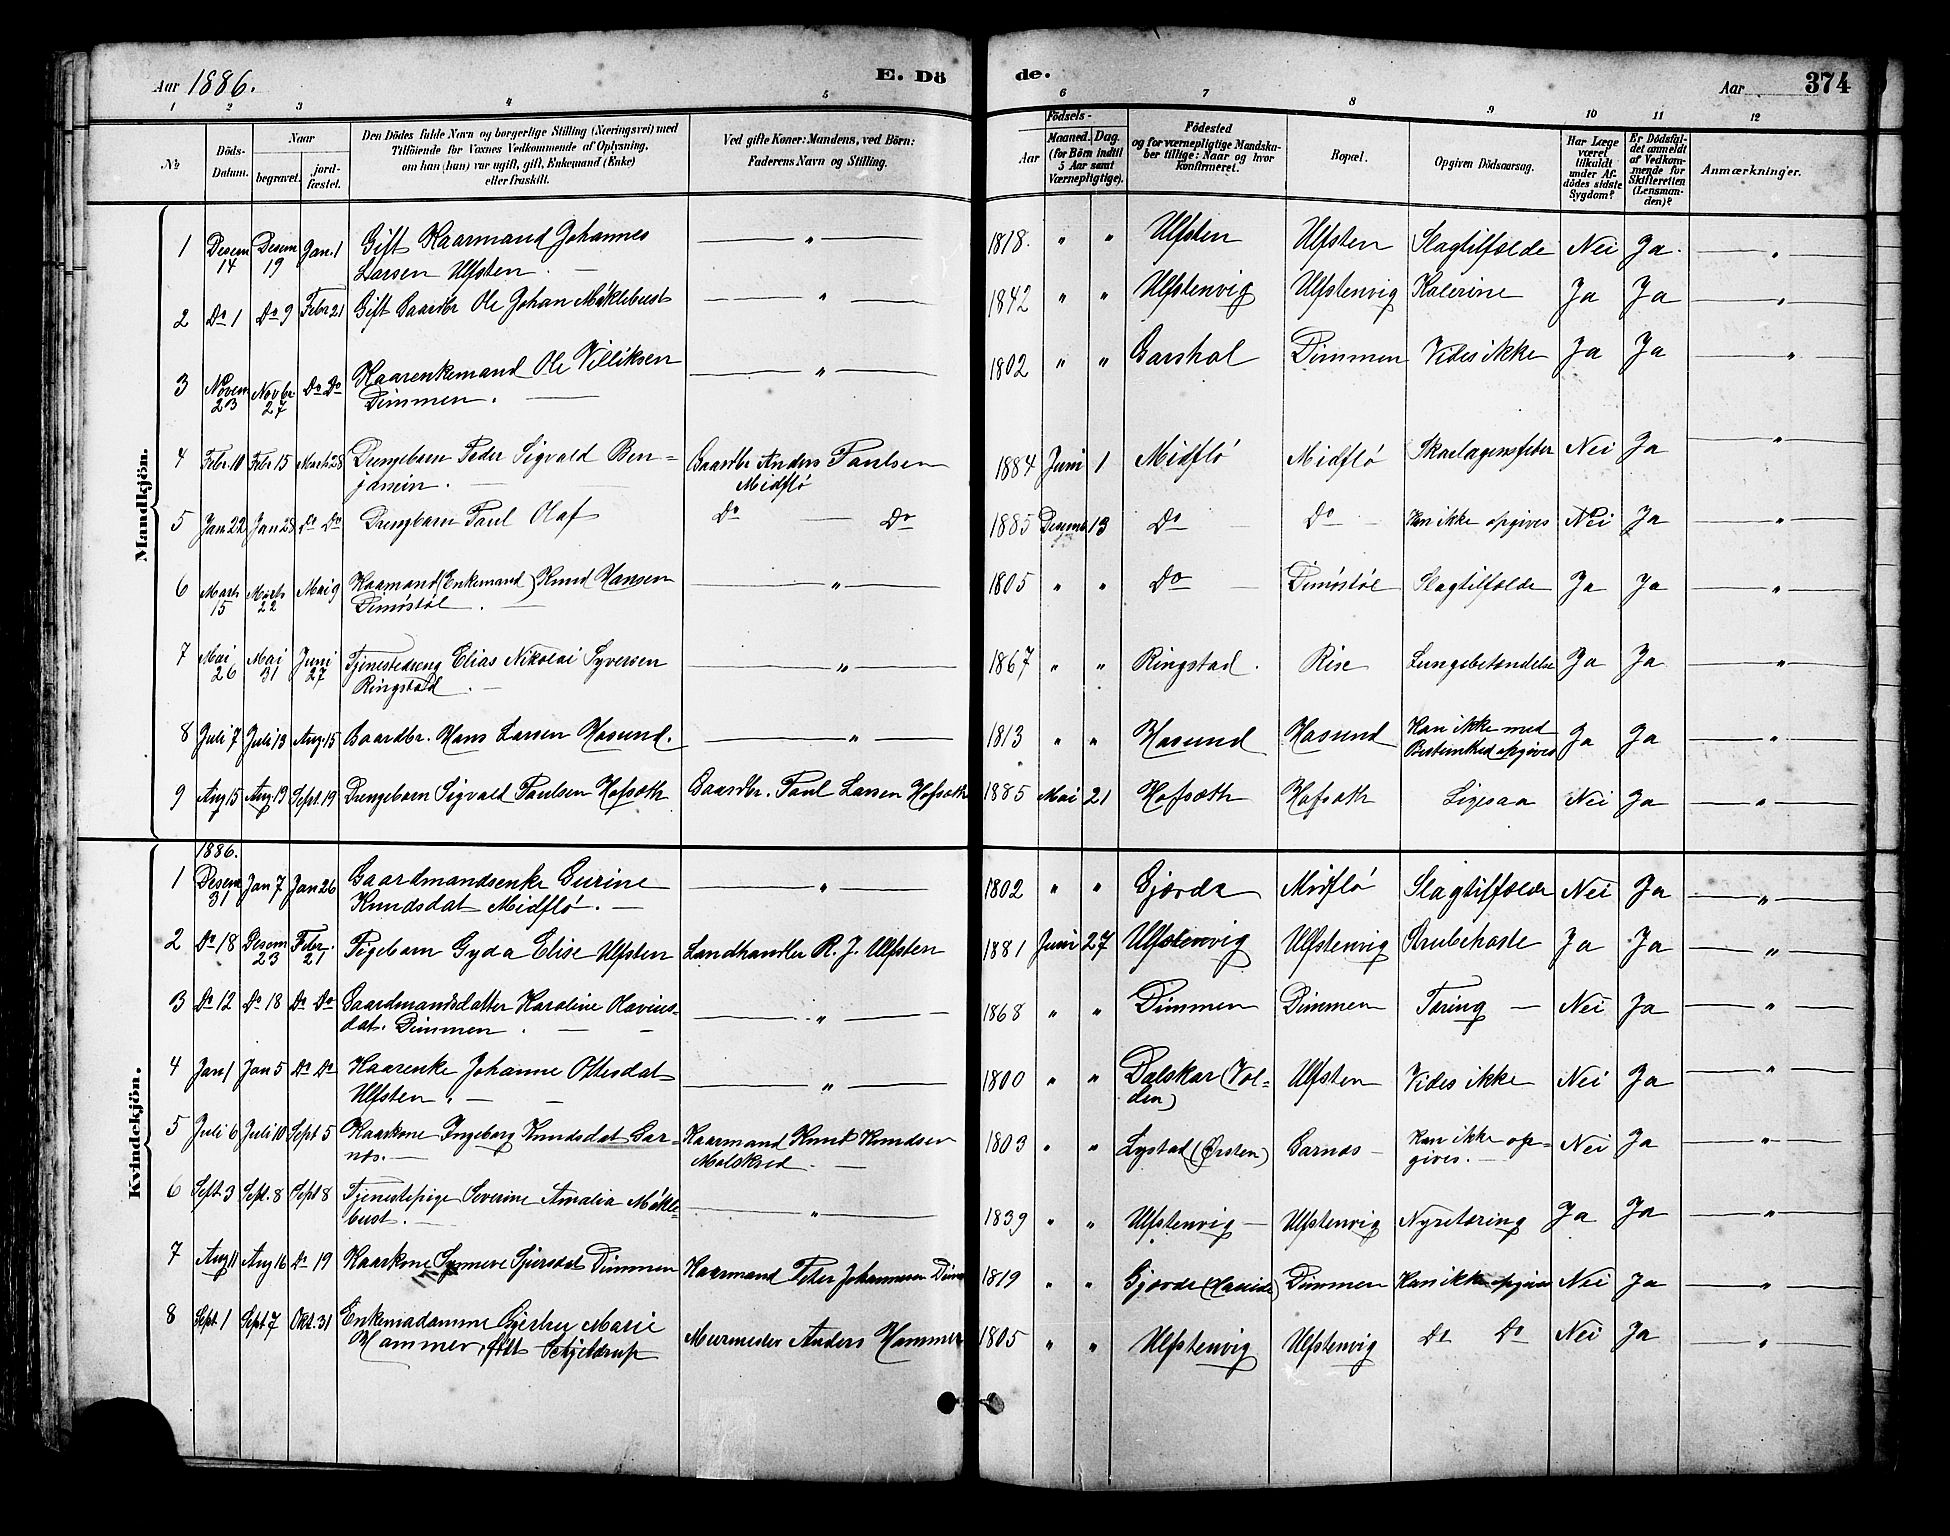 Aar 1886. E. Dö
de. Aar 374
1 2 3 4 5 6 7 8 9 10 11 12
№
Döds-Datum.
Naar
begravet.
jord-fæstet.
Den Dödes fulde Navn og borgerlige Stilling (Næringsvei) med Tilföiende for Voxnes Vedkommende af Oplysning, om han (hun) var ugift, gift, Enkemand (Enke) eller fraskilt.
Ved gifte Koner: Mandens, ved Börn: Faderens Navn og Stilling.
Födsels-
Aar
Maaned. Dag.
(for Börn indtil 5 Aar samt Værnepligtige).
Födested og for værnepligtige Mandskaber tillige: Naar og hvor konfirmeret.
Bopæl.
Opgiven Dödsaarsag.
Har Læge været tilkaldt under Afdödes sidste Sygdom?
Er Dödsfaldet anmeldt af Vedkommende for Skifteretten (Lensmanden)?
Anmærkninger.
Mandkjön.
1 Desem 14 Desem 19 Jan. 1 Gift Kaarmand Johannes Larsen Ulfsten. — „ — 1818. „ „ Ulfsten Ulfsten Slagtilfælde Nei Ja. — „ —
2 Do 1 Do 9 Febr 21 Gift Gaardbr Ole Johan Mäklebust — „ — 1842 „ „ Ulfstenvig Ulfstenvig Kolerine Ja Ja — „ —
3 Novem 23 Novbr 27 Do Do Kaarenkemand Ole Villiksen Dimmen. — „ — 1802 „ „ Garshol Dimmen Vides ikke Ja Ja — „ —
4 Febr. 10 Febr 15 Marts 28 Drengebarn Peder Sigvald Ben-jamin. Gaardbr Anders Paulsen Midflö 1884 Juni 1 Midflö Midflö Skarlagensfeber Nei Ja — „ —
5 Jan 22 Jan 28 Do Do Drengbarn Paul Olaf Do — Do 1885 Desemb 13 Do Do Kan ikke opgives Nei Ja — „ —
6 Marts 15 Marts 22 Mai 9 Kaarmand (Enkemand) Knud Hansen Dimöstöl. — „ — 1805 „ „ Do Dimöstöl Slagtilfælde Ja Ja — „ —
7 Mai 26 Mai 31 Juni 27 Tjenestedreng Elias Nikolai Syversen Ringstad. — „ — 1867 „ „ Ringstad. Rise Lungebetændelse Ja Ja — „ —
8 Juli 7 Juli 13 Aug. 15 Gaardbr. Hans Larsen Hasund. — „ — 1813 „ „ Hasund Hasund Kan ikke med Bestemthed opgives Ja Ja — „ —
9 Aug 15 Aug 19 Sept. 19 Drengebarn Sigvald Paulsen Hofsæth Gaardbr. Paul Larsen Hofsæth 1885 Mai 21 Hofsæth Hofsæth Ligesaa Nei Ja — „ —
Kvindekjön.
1886.
1 Desem 31 Jan 7 Jan 26 Gaardmandsenke Gurine Knudsdat Midflö. — „ — 1802 „ „ Gjerde Midflö Slagtilfælde Nei Ja — „ —
2 Do 18 Desem 23 Febr. 21 Pigebarn Gyda Elise Ulfsten Landhandler R. J. Ulfsten 1881 Juni 27 Ulfstenvig Ulfstenvig Strubehoste Ja Ja — „ —
3 Do 12 Do 18 Do Do Gaardmandsdatter Karoline Olavius-dat. Dimmen. — „ — 1868 „ „ Dimmen Dimmen Tæring — Nei Ja — „ —
4 Jan 1 Jan 5 Do Do Kaarenke Johanne Ottesdat Ulfsten. — „ — 1800 „ „ Dalskar (Vol-den) Ulfsten Vides ikke Nei Ja — „ —
5 Juli 6 Juli 10 Sept 5 Kaarkone Ingeborg Knudsdat Gar-nes. Kaarmand Knut Knudsen Molskred. 1803 „ „ Lystad (Örsten) Garnes Kan ikke op-gives. Nei Ja — „ —
6 Sept. 3 Sept. 8 Sept 8 Tjenestepige Severine Amalia Mäkle-bust. — „ — 1839 „ „ Ulfstenvig — Ulfstenvig Nyretæring Ja Ja — „ —
7 Aug 11 Aug 16 Do 19 Kaarkone Synneve Sjursdat Dimmen Kaarmand Peter Johannesen Dim 1819 „ „ Gjerde Dimmen Kan ikke opgives Nei Ja — „ —
8 Sept 1 Sept 7 Okt. 31 Enkemadamme Gjertru Marie Hammer, født Schjeldrup Murmester Anders Hammer 1805 „ „ Ulfstenvig Ulfstenvig Do Do Nei Ja — „ —